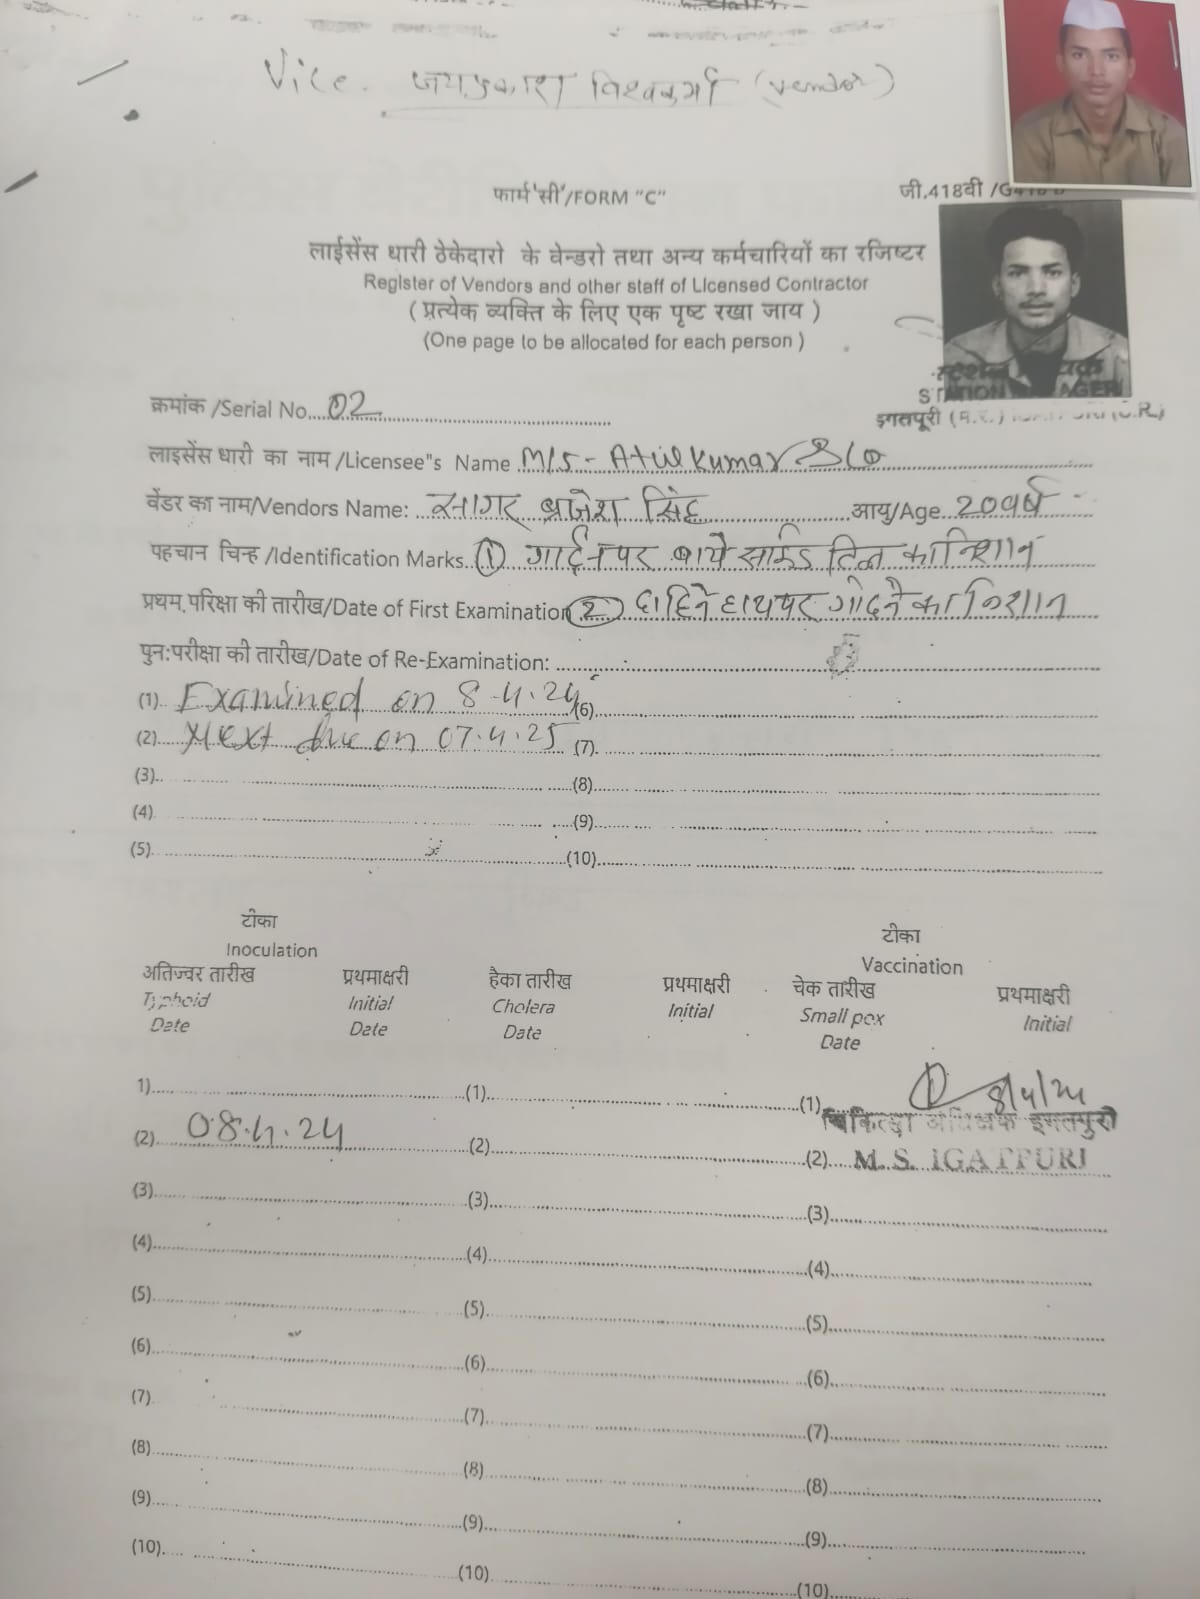 Vice. जयप्रकाश विश्वकर्मा (vendor)
फार्म'सी'/FORM "C"
जी.418बी /G418 B
लाईसेंस धारी ठेकेदारो के वेन्डरो तथा अन्य कर्मचारियों का रजिष्टर
Register of Vendors and other staff of Licensed Contractor
( प्रत्येक व्यक्ति के लिए एक पृष्ट रखा जाय )
(One page to be allocated for each person )
STATION MANAGER
इगतपूरी
क्रमांक /Serial No. 02
लाइसेंस धारी का नाम /Licensee"s Name M/s - Atul Kumar & Co
वेंडर का नाम/Vendors Name: सागर ब्रजेश सिंह आयु/Age 20 वर्ष
पहचान चिन्ह /Identification Marks. (1) गार्दन पर बाये साईड तिल का निशान
प्रथम परिक्षा की तारीख/Date of First Examination (2) दाहिने हाथपर गोदने का निशान
पुन:परीक्षा की तारीख/Date of Re-Examination:
(1). Examined on 8.4.24 (6)
(2). Next due on 07.4.25 (7).
(3).. (8)
(4). (9)
(5). (10)
टीका टीका
Inoculation Vaccination
अतिज्वर तारीख प्रथमाक्षरी हैका तारीख प्रथमाक्षरी चेक तारीख प्रथमाक्षरी
Typhoid Initial Cholera Initial Small pox Initial
Date Date Date Date
1) (1) (1) 8/4/24
चिकित्सा अधिक्षक इगतपुरी
(2) 08.4.24 (2) (2) M. S. IGATPURI
(3) (3) (3)
(4) (4) (4)
(5) (5) (5)
(6) (6) (6)
(7) (7) (7)
(8) (8) (8)
(9) (9) (9)
(10) (10) (10)